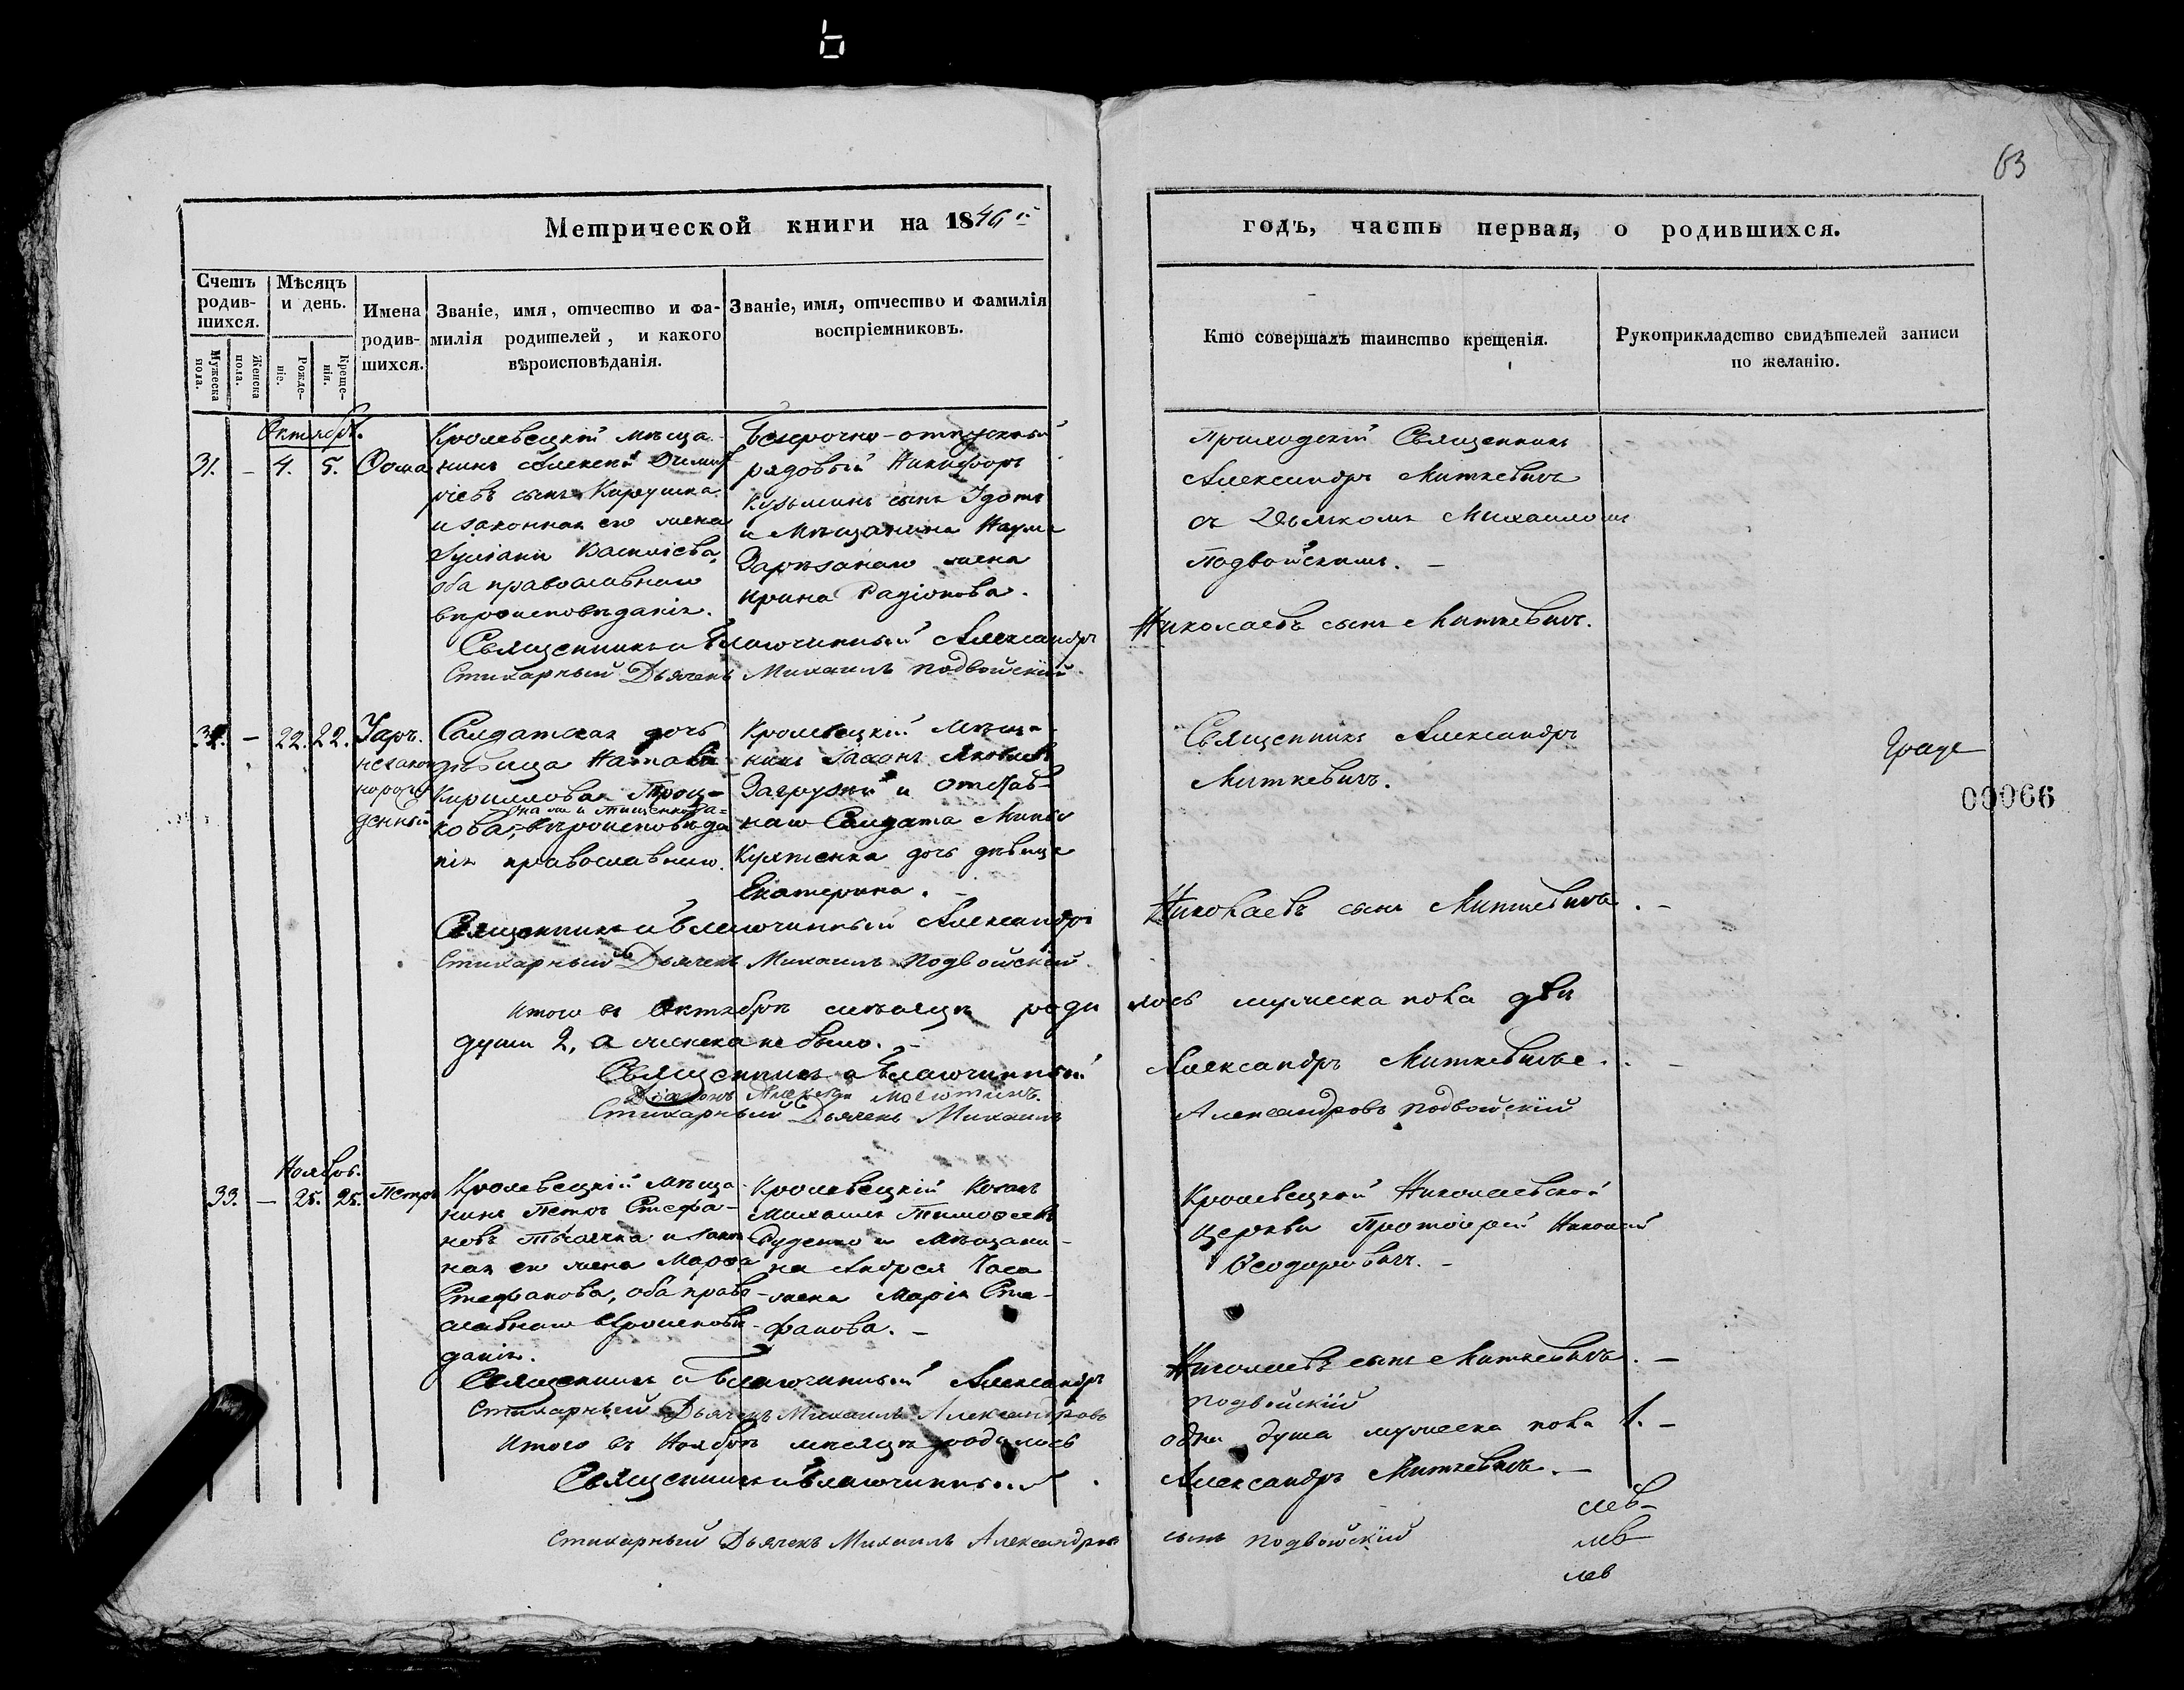 63
Метрической книги на 1846й
годъ, часть первая, о родившихся.
Счетъ родив-шихся.
Мужеска пола.
Женска пола.
Мѣсяцъ и день.
Рожде-нія.
Креще-нія.
Имена родив-шихся.
Званіе, имя, отчество и фа-
милія родителей, и какого
вѣроисповѣданія.
Званіе, имя, отчество и фамилія
воспріемниковъ.
Кто совершалъ таинство крещенія.
Рукоприкладство свидѣтелей записи
по желанію.
Октябрь.
31. – 4. 5. Ѳома
Кролевецкій мѣща-
нинъ Алексей
сынъ
и законная его жена
Іуліанія Василіева,
оба православнаго
вѣроисповѣданія.
Безсрочно-отпускный
рядовый Никифоръ
Кузьминъ сынъ
и Мѣщанина Наума
жена
Ирина Радіонова.
Приходскій Священникъ
Александръ Миткевичъ
съ Дьячкомъ Михаиломъ
Подвойскимъ. –
Священникъ и Благочинный Александръ Николаевъ сынъ Миткевичъ.
Стихарный Дьячекъ Михаилъ Подвойскій
32. – 22. 22.
незакон
норож
денный
Солдатская дочь
дѣвица Наталія
Кириллова
вѣроисповѣда
нія православнаго.
Кролевецкій Мѣща-
нинъ Яковлевъ
и Отстав-
наго Солдата
дочь дѣвица
Екатерина. –
Священникъ Александръ
Миткевичъ.
00066
Священникъ и Благочинный Александръ Николаевъ сынъ Миткевичъ. –
Стихарный Дьячекъ Михаилъ Подвойскій
Итого въ Октябрѣ мѣсяцѣ роди лось мужеска пола двѣ
души 2, а женска не было. –
Священникъ и Благочинный Александръ Миткевичъ. –
Діаконъ Алексѣй
Стихарный Дьячекъ Михаилъ Александровъ Подвойскій
Ноябрь.
33. – 25. 25. Петръ
Кролевецкій мѣща-
нинъ Петръ Стефа-
новъ и закон
ная его жена Марѳа
Стефанова, оба право-
славнаго вѣроисповѣ-
данія.
Кролевецкій Козакъ
Михаилъ Тимоѳеевъ
Руденко и Мѣщани-
на Андрея Часа
жена Марія Сте-
фанова. –
Кролевецкой Николаевской
Церкви Протоіерей Николай
Ѳеодоровичъ. –
Священникъ и Благочинный Александръ Николаевъ сынъ Миткевичъ. –
Стихарный Дьячекъ Михаилъ Александровъ Подвойскій
Итого въ Ноябрѣ мѣсяцѣ родилось одна душа мужеска пола 1. –
Священникъ и Благочинный Александръ Миткевичъ. –
Стихарный Дьячекъ Михаилъ Александровъ сынъ Подвойскій